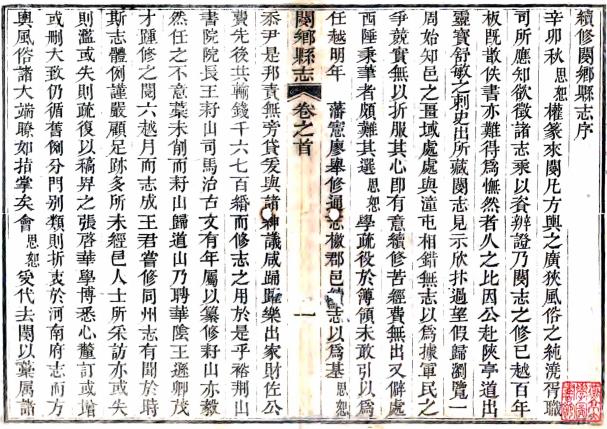 續修閿鄉縣志序
辛卯秋思恕權篆來閿凡方輿之廣狹風俗之純澆胥職
司所應知欲徵諸志乘以資辨證乃閿志之修已越百年
板既散佚書亦難得爲憮然者久之比因公赴陝亭道出
靈寶舒敏之刺史出所藏閿志見示欣抃過望假歸瀏覽一
周始知邑之畺域處處與潼屯相錯無志以爲據軍民之
爭競實無以折服其心即有意續修苦經費無出又僻處
西陲秉筆者頗難其選思恕學疏役於簿領未敢引以爲
任越明年
藩憲廖舉修通志檄郡邑纂志以爲基思恕
閿鄉縣志
卷之首
一
忝尹是邦責無旁貸爰與諸紳議咸踴躍樂出家財佐公
費先後共輸錢千六七百緡而修志之用於是乎裕荆山
書院院長王籽山司馬治古文有年屬以纂修籽山亦毅
然任之不意葉未削而籽山歸道山乃聘華陰王遜卿茂
才踵修之閱六越月而志成王君嘗修同州志有聞於時
斯志體例謹嚴顧足跡多所未經邑人士所采訪亦或失
則濫或失則疏復以稿畀之張啓華學博悉心釐訂或增
或刪大致仍循舊例分門別類則折衷於河南府志而方
輿風俗諸大端瞭如指掌矣會思恕受代去閿以藁屬諸